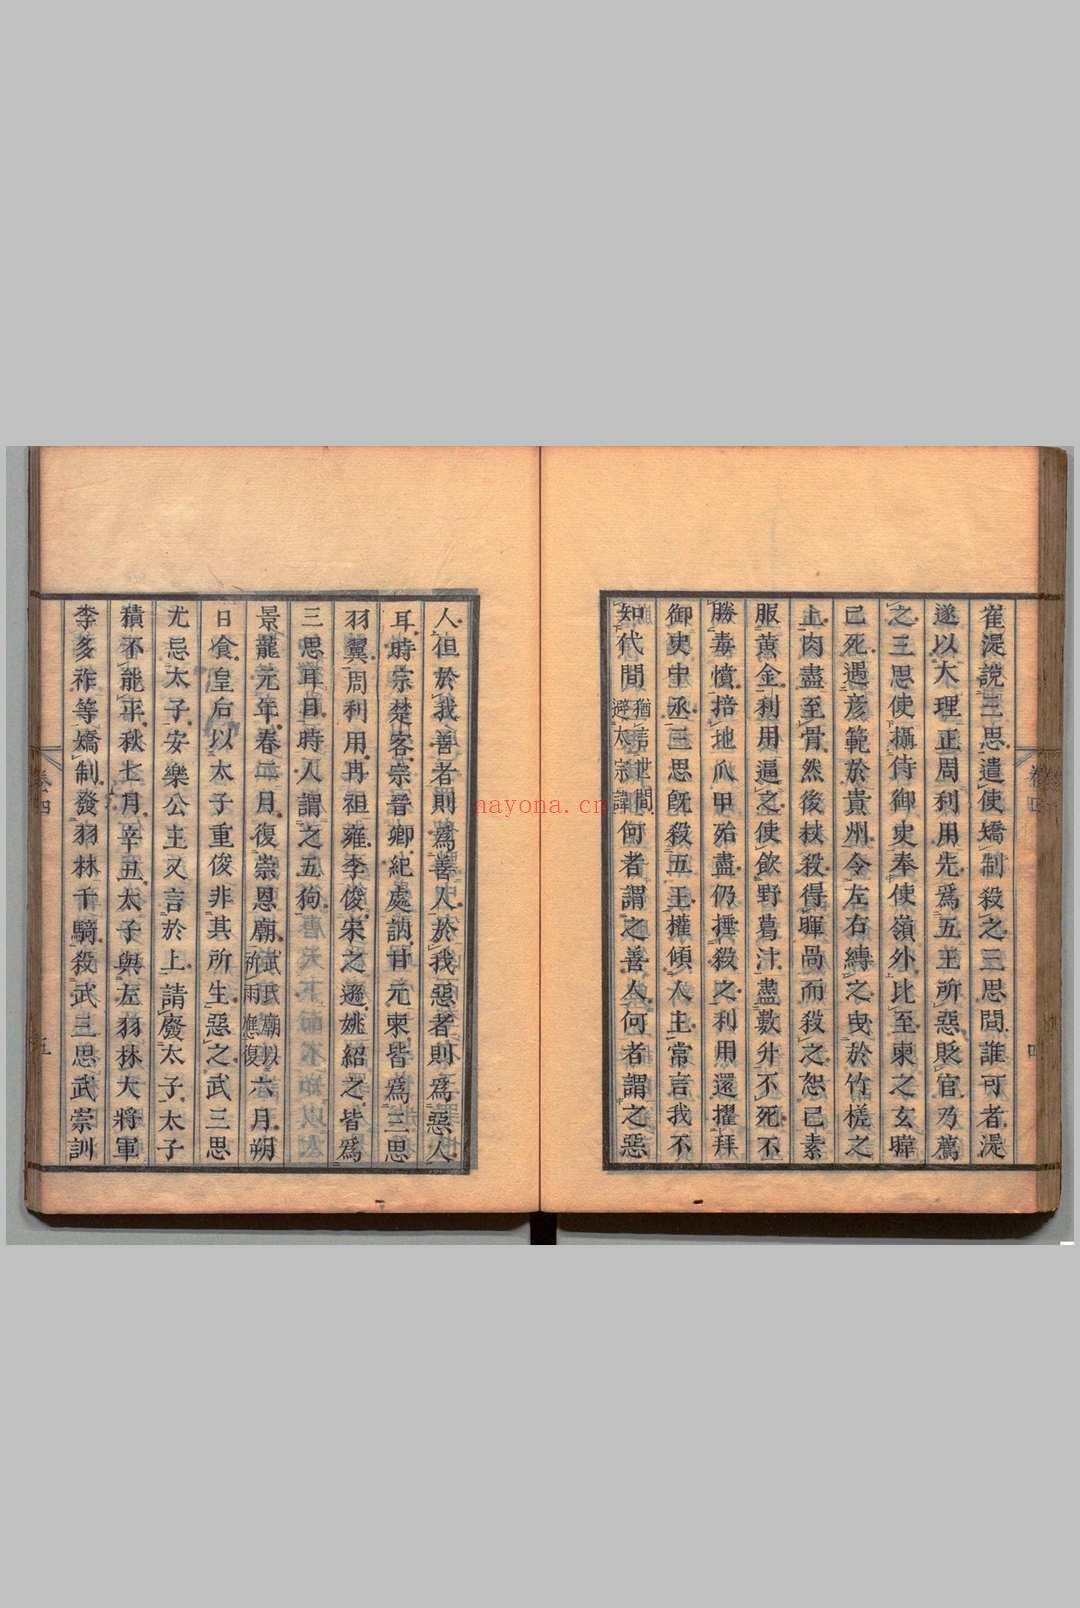 崔湜說三思遣使矯制殺之三思問誰可者湜
遂以大理正周利用先爲五王所惡貶官乃薦
之三思使攝侍御史奉使嶺外比至柬之玄暐
已死遇彦範於貴州令左右縛之曳於竹槎之
上肉盡至骨然後杖殺得暉咼而殺之恕已素
服黄金利用逼之使飲野葛汁盡數升不死不
勝毒憤掊地爪甲殆盡仍捶殺之利用還擢拜
御史中丞三思旣殺五王權傾人主常言我不
知代間猶言世間避太宗諱何者謂之善人何者謂之惡
卷四
四
人但於我善者則爲善人於我惡者則爲惡人
耳時宗楚客宗晉卿紀處訥甘元柬皆爲三思
羽翼周利用冉祖雍李俊宋之遜姚紹之皆爲
三思耳目時人謂之五狗
景龍元年春二月復崇恩廟武氏廟以祈雨應復六月朔
日食皇后以太子重俊非其所生惡之武三思
尤忌太子安樂公主又言於上請廢太子太子
積不能平秋七月辛丑太子與左羽林大將軍
李多祚等矯制發羽林千騎殺武三思武崇訓
卷四
五
nayona.cn